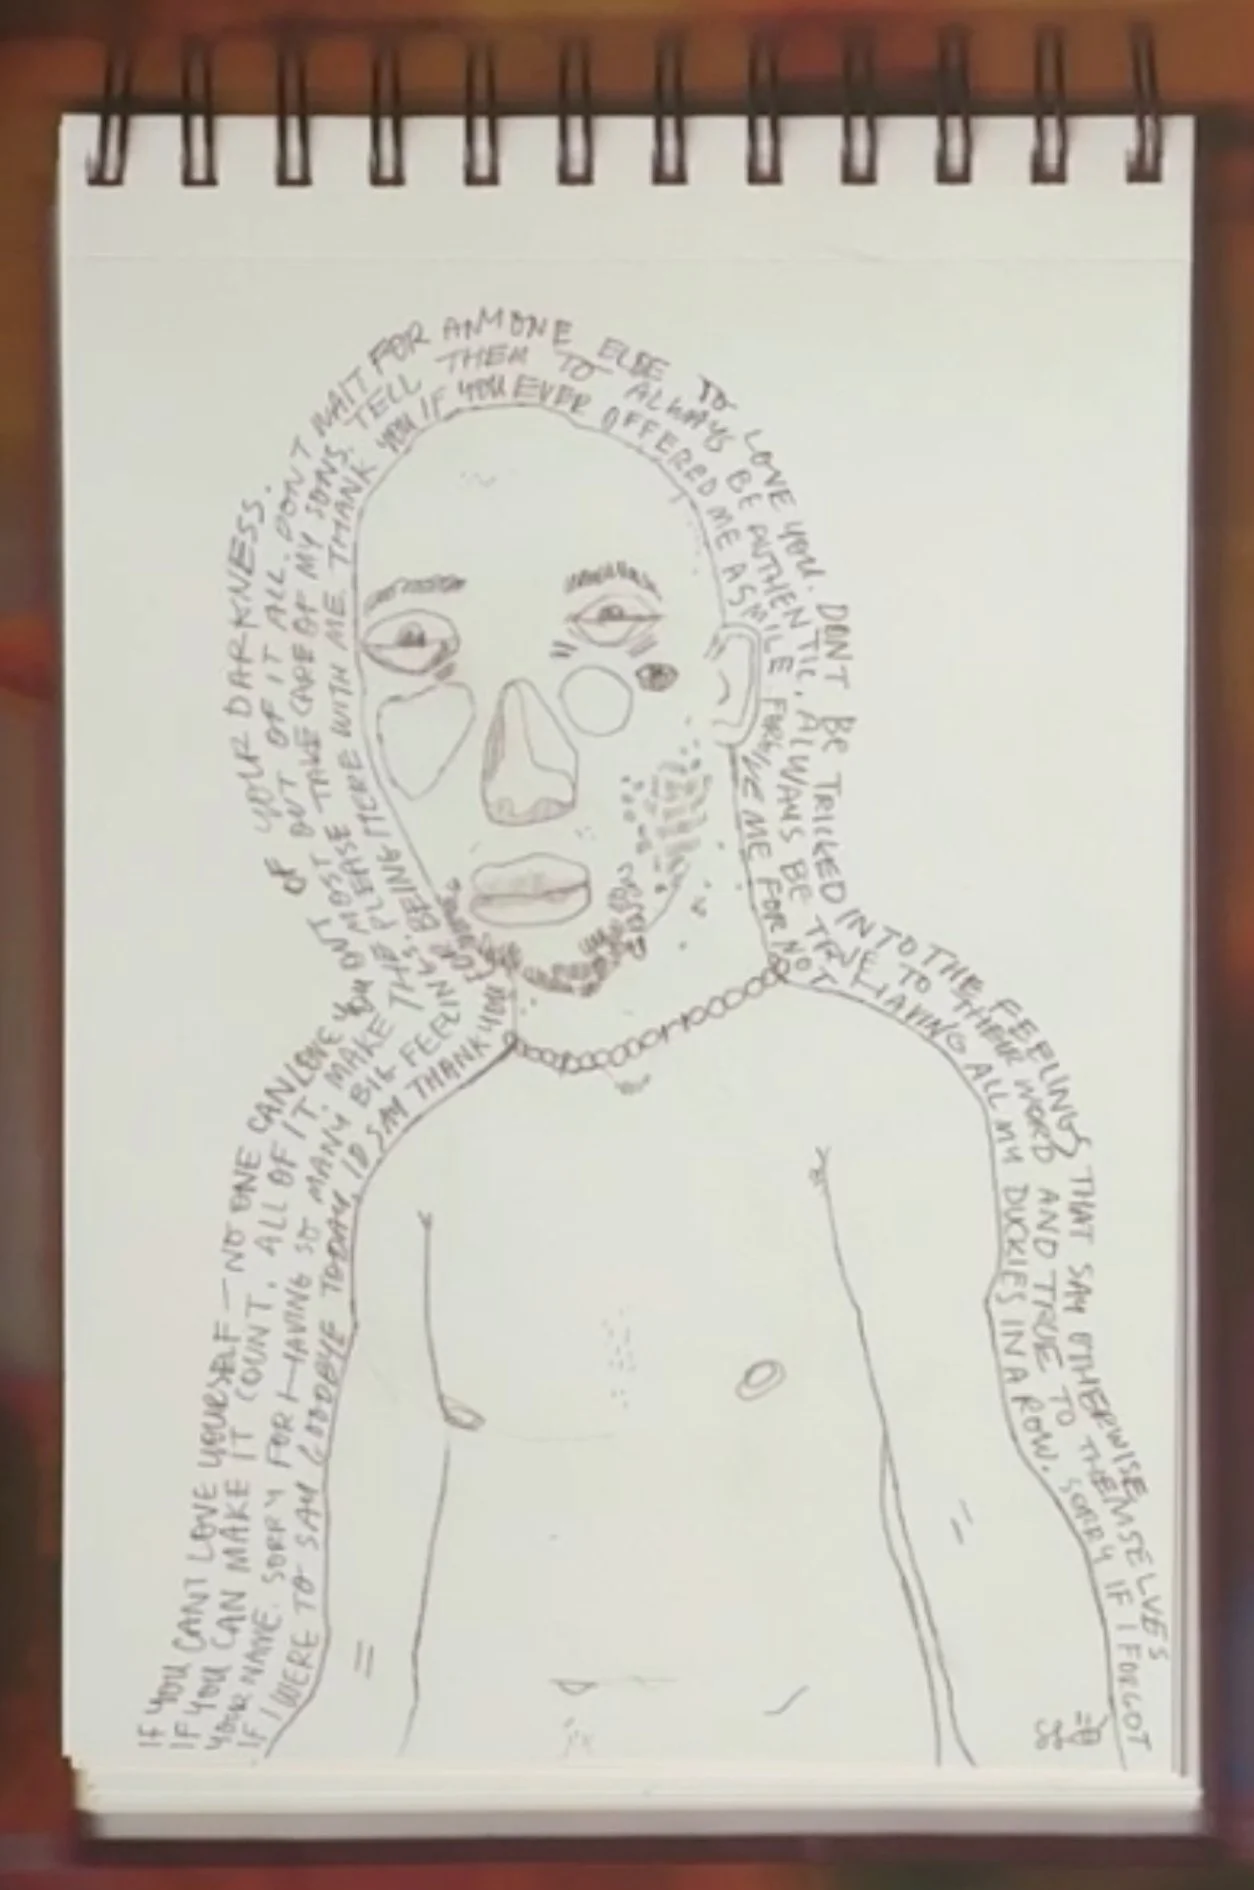 IF YOU CANT LOVE YOURSELF — NO ONE CAN LOVE YOU OUT OF YOUR DARKNESS.
IF YOU CAN MAKE IT COUNT, ALL OF IT. MAKE THE MOST OUT OF IT ALL. DONT WAIT FOR ANYONE ELSE TO LOVE YOU. DONT BE TRICKED INTO THE FEELINGS THAT SAY OTHERWISE
YOUR NAME. SORRY FOR HAVING SO MANY BIG FEELINGS. PLEASE TAKE CARE OF MY SONS. TELL THEM TO ALWAYS BE AUTHENTIC. ALWAYS BE TRUE TO THEIR WORD AND TRUE TO THEMSELVES
IF I WERE TO SAY GOODBYE TODAY, ID SAY THANK YOU FOR BEING HERE WITH ME. THANK YOU IF YOU EVER OFFERED ME A SMILE FORGIVE ME FOR NOT HAVING ALL MY DUCKIES IN A ROW. SORRY IF I FORGOT